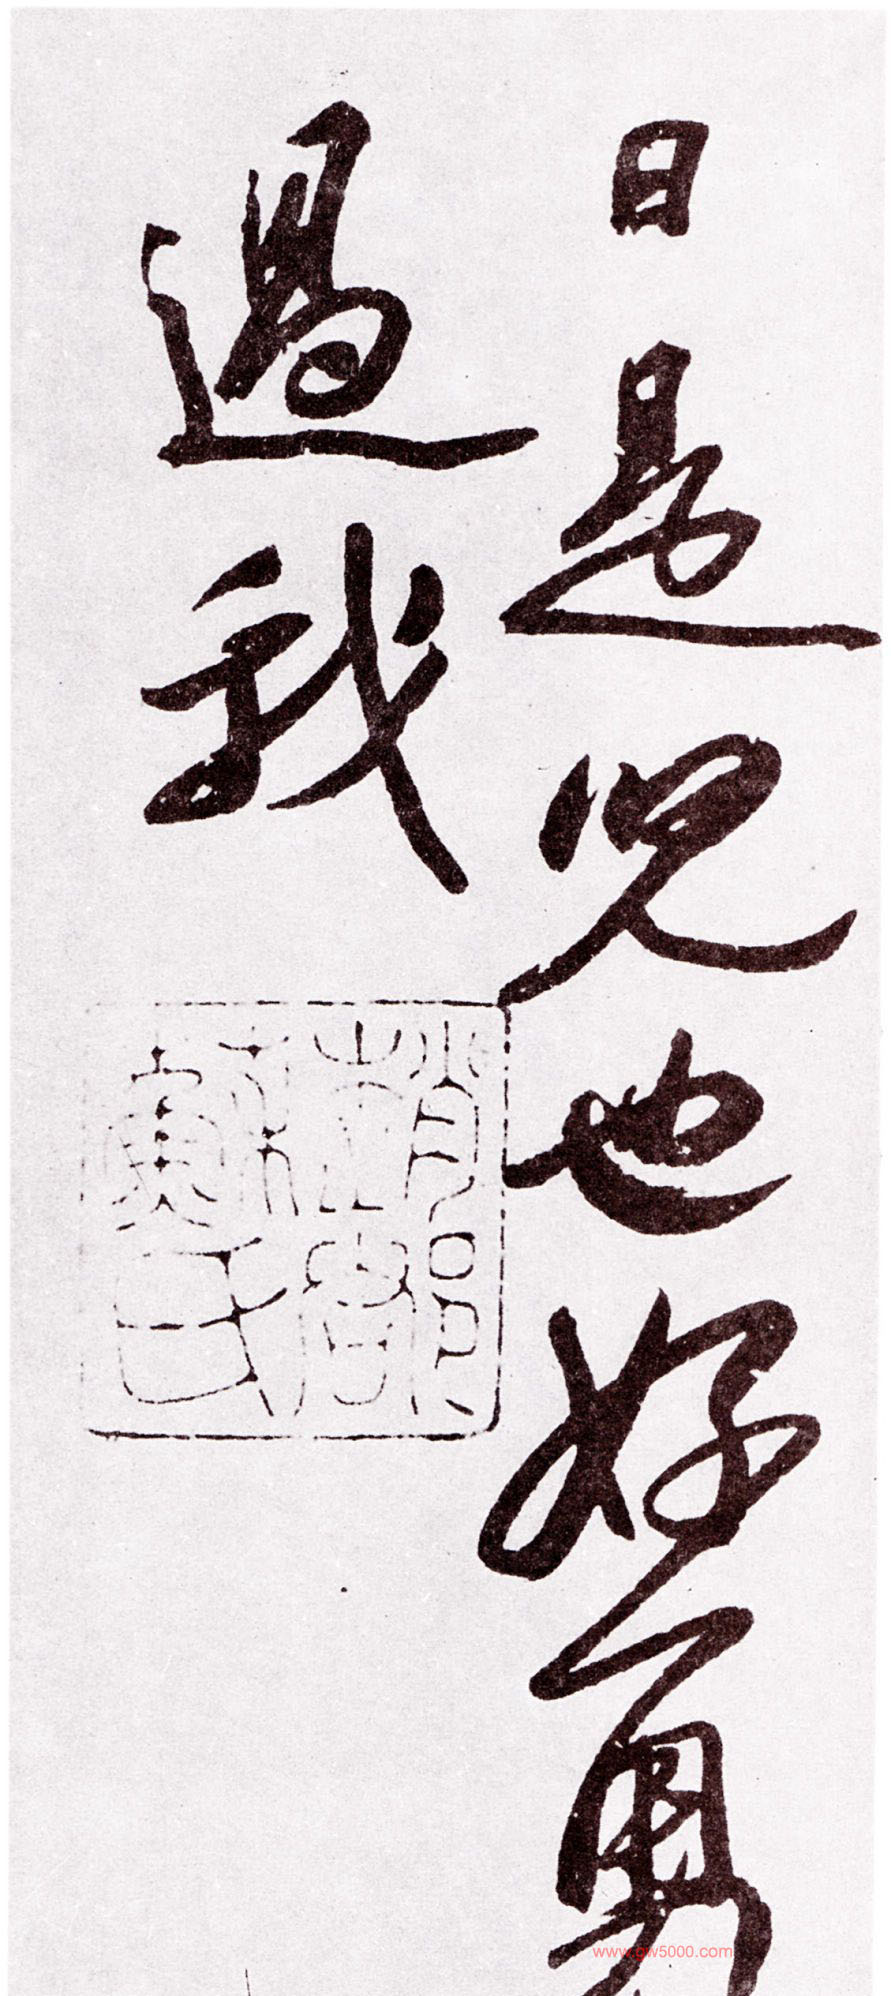 日是兒也好勇
過我
www.gw5000.com